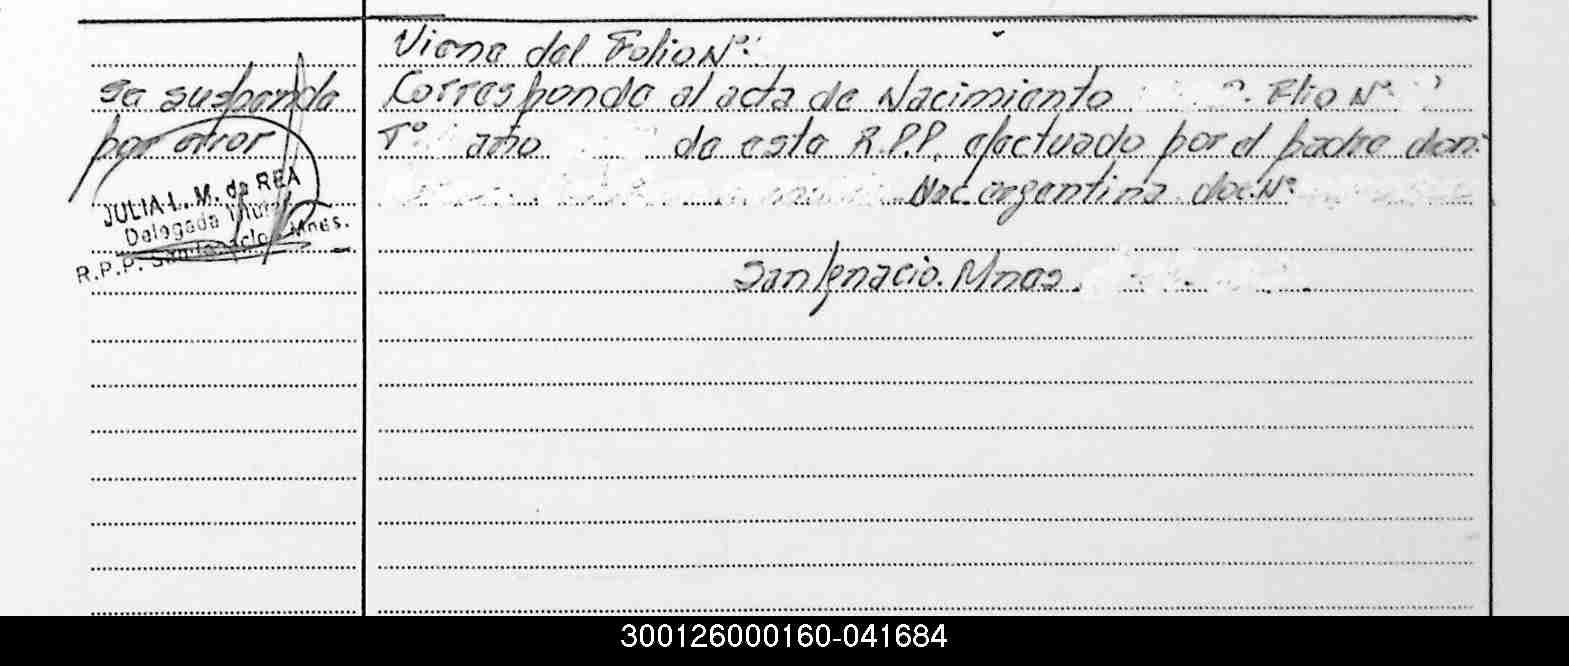 Viene del Folio Nº:
Corresponde al acta de Nacimiento Flio Nº
Tº año de esta R.P.P. efectuado por el padre don:
Nac argentina doc. Nº
San Ignacio. Mnes.
se suspende
por error
JULIA L. M. de REA
Delegada Titular
R.P.P. San Ignacio Mnes.
300126000160-041684